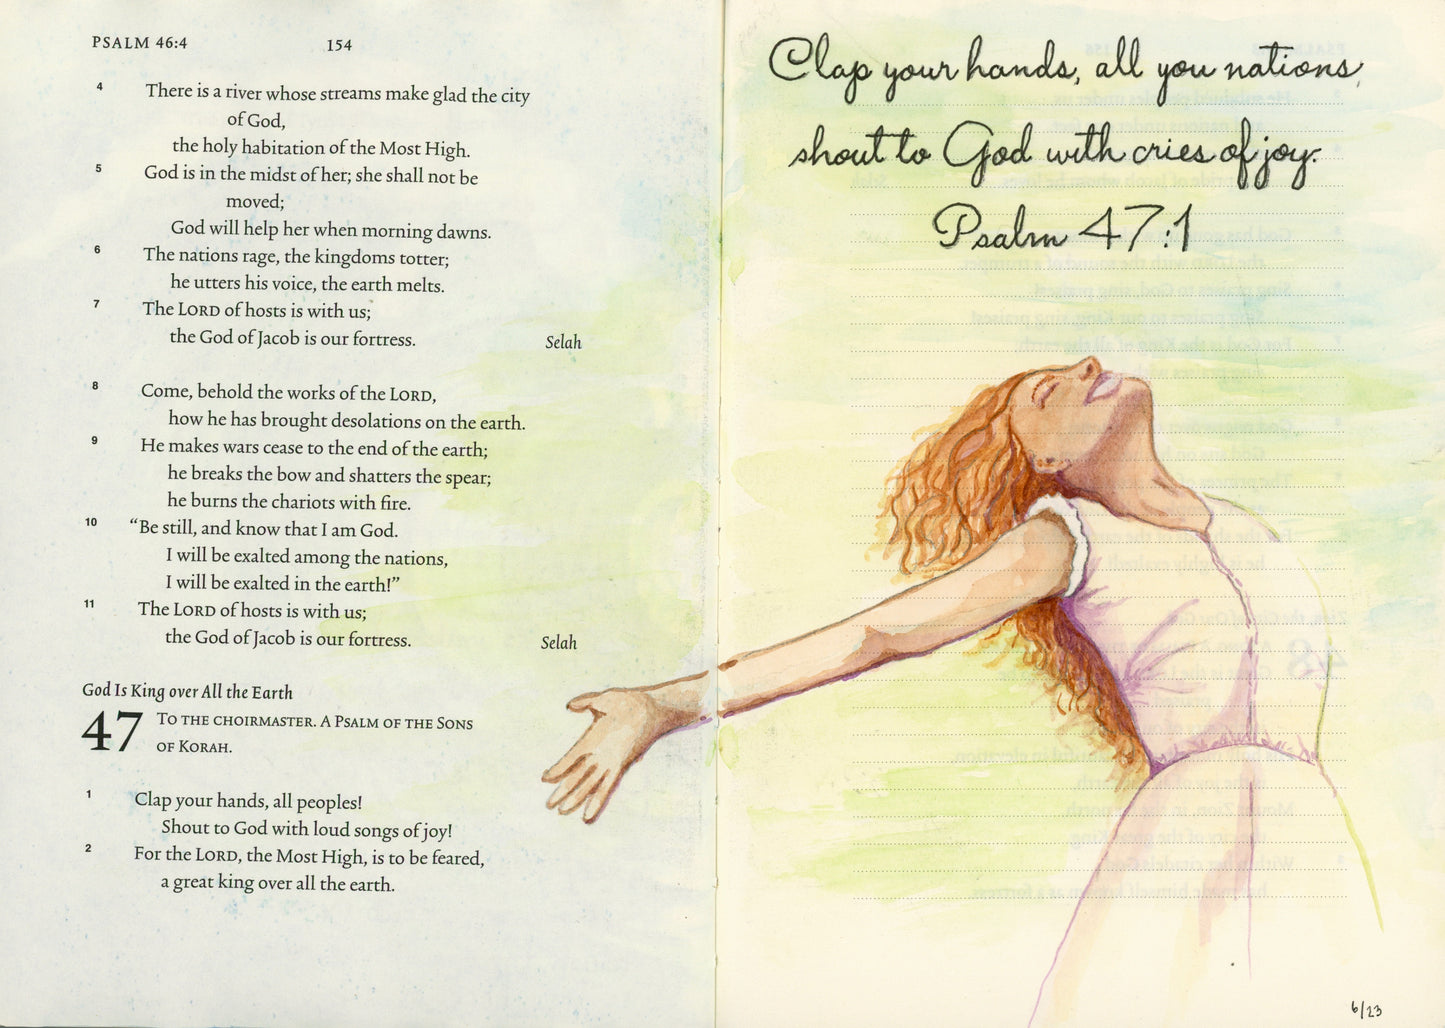 PSALM 46:4 154
4 There is a river whose streams make glad the city
of God,
the holy habitation of the Most High.
5 God is in the midst of her; she shall not be
moved;
God will help her when morning dawns.
6 The nations rage, the kingdoms totter;
he utters his voice, the earth melts.
7 The LORD of hosts is with us;
the God of Jacob is our fortress. Selah
8 Come, behold the works of the LORD,
how he has brought desolations on the earth.
9 He makes wars cease to the end of the earth;
he breaks the bow and shatters the spear;
he burns the chariots with fire.
10 “Be still, and know that I am God.
I will be exalted among the nations,
I will be exalted in the earth!”
11 The LORD of hosts is with us;
the God of Jacob is our fortress. Selah
God Is King over All the Earth
47 TO THE CHOIRMASTER. A PSALM OF THE SONS
OF KORAH.
1 Clap your hands, all peoples!
Shout to God with loud songs of joy!
2 For the LORD, the Most High, is to be feared,
a great king over all the earth.
Clap your hands, all you nations,
shout to God with cries of joy.
Psalm 47:1
6/23